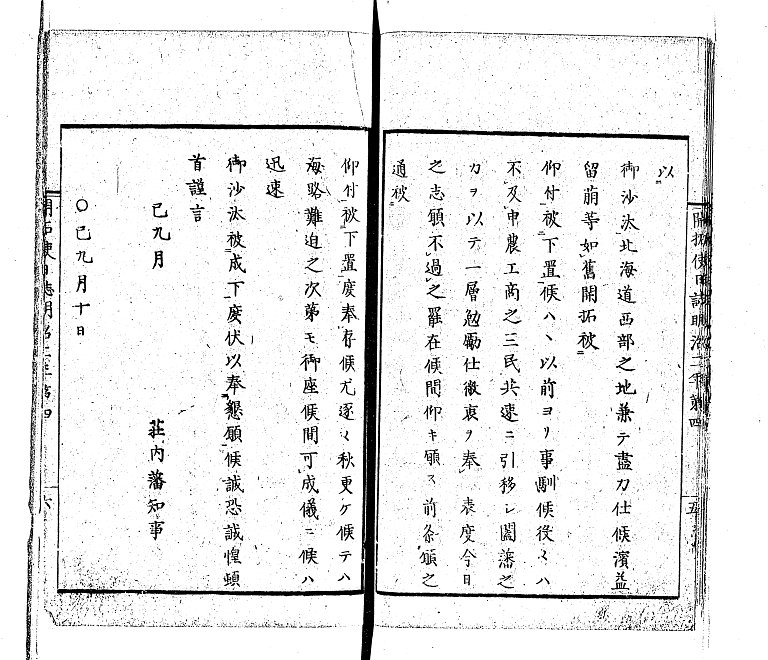 開拓使日誌明治二年第四
五
以
御沙汰北海道西部之地兼テ盡力仕候濱益
留萠等如舊開拓被
仰付被下置候ハヽ以前ヨリ事馴候役々ハ
不及申農工商之三民共速ニ引移レ闔藩之
力ヲ以テ一層勉勵仕微衷ヲ奉表度今日
之志願不過之罷在候間仰キ願ハ前条願之
通被
仰付被下置度奉存候尤逐々秋更ケ候テハ
海路難迫之次第モ御座候間可成儀ニ候ハ
迅速
御沙汰被成下度伏以奉懇願候誠恐誠惶頓
首謹言
已九月
莊内藩知事
〇已九月十日
開拓使日誌明治二年第四
六